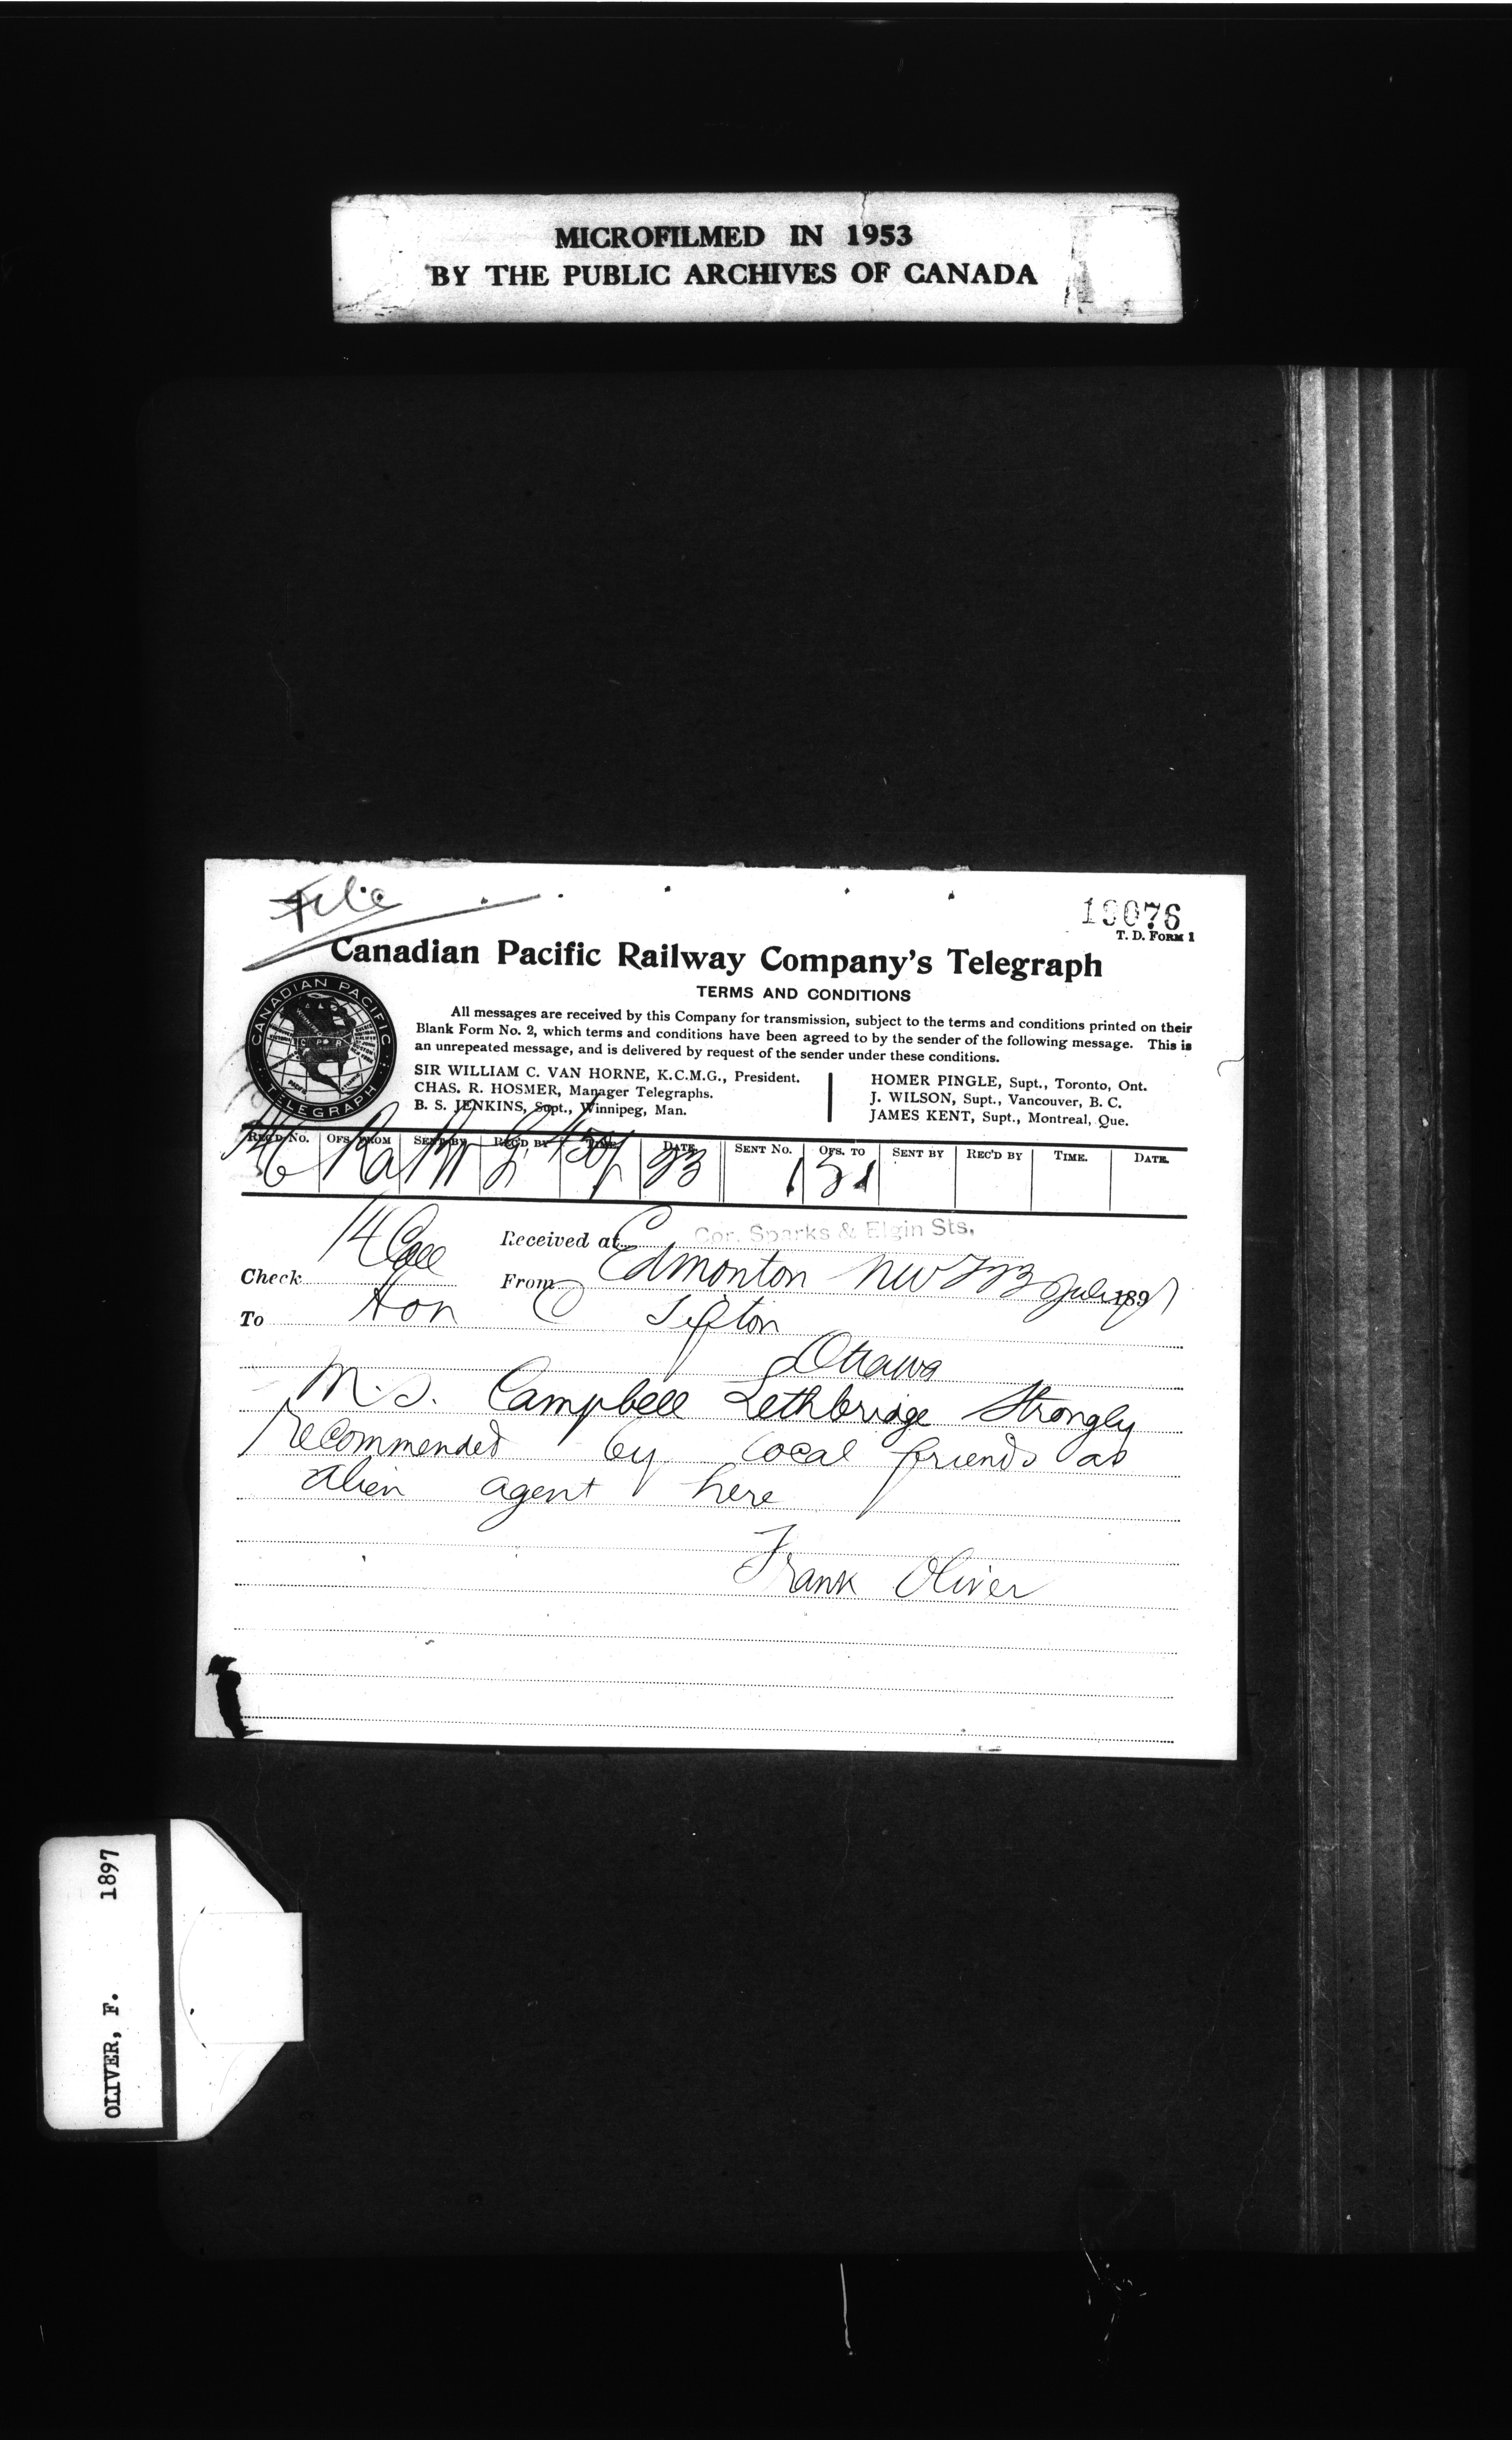 MICROFILMED IN 1953
BY THE PUBLIC ARCHIVES OF CANADA
File
19076
T. D. FORM 1
Canadian Pacific Railway Company's Telegraph
TERMS AND CONDITIONS
All messages are received by this Company for transmission, subject to the terms and conditions printed on their
Blank Form No. 2, which terms and conditions have been agreed to by the sender of the following message. This is
an unrepeated message, and is delivered by request of the sender under these conditions.
SIR WILLIAM C. VAN HORNE, K.C.M.G., President.
CHAS. R. HOSMER, Manager Telegraphs.
B. S. JENKINS, Supt., Winnipeg, Man.
HOMER PINGLE, Supt., Toronto, Ont.
J. WILSON, Supt., Vancouver, B. C.
JAMES KENT, Supt., Montreal, Que.
CANADIAN PACIFIC
TELEGRAPH
REC'D NO. OFS. FROM SENT BY REC'D BY TIME. DATE. SENT NO. OFS. TO SENT BY REC'D BY TIME. DATE.
23
Received at Cor. Sparks & Elgin Sts.
Check 14 Coll From Edmonton NWT 23 July 1897
To Hon C Sifton
Ottawa
M. S. Campbell Lethbridge Strongly
recommended by local friends as
alien agent here
Frank Oliver
OLIVER, F. 1897